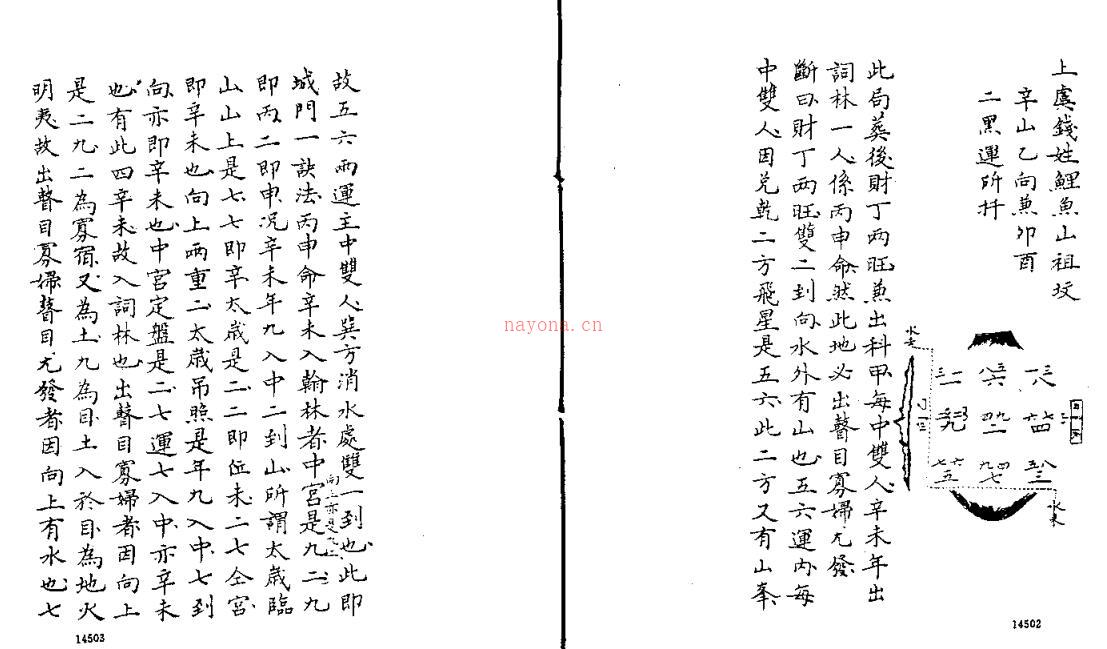 上虞錢姓鯉魚山祖坟
辛山乙向兼卯酉
二黑運所扦
水去
水来
此局葬後財丁两旺兼出科甲每中雙人辛未年出
詞林一人係丙申命然此地必出瞽目寡婦尤發
斷曰財丁两旺雙二到向水外有山也五六運内每
中雙人因兑乾二方飛星是五六此二方又有山峯
14502
故五六兩運主中雙人巽方消水處雙一到也此即
城門一訣法丙申命辛未入翰林者中宮是九二九
向上亦是九二
即丙二即申况辛未年九入中二到山所謂太歲臨
山山上是七七即辛太歲是二二即位未二七仝宮
即辛未也向上两重二太歲吊照是年九入中七到
向亦即辛未也中宮定盤是二七運七入中亦辛未
也有此四辛未故入詞林也出瞽目寡婦者因向上
是二九二為寡宿又為土九為目土入於目為地火
明夷故出瞽目寡婦瞽目尤發者因向上有水也七
14503
nayona.cn